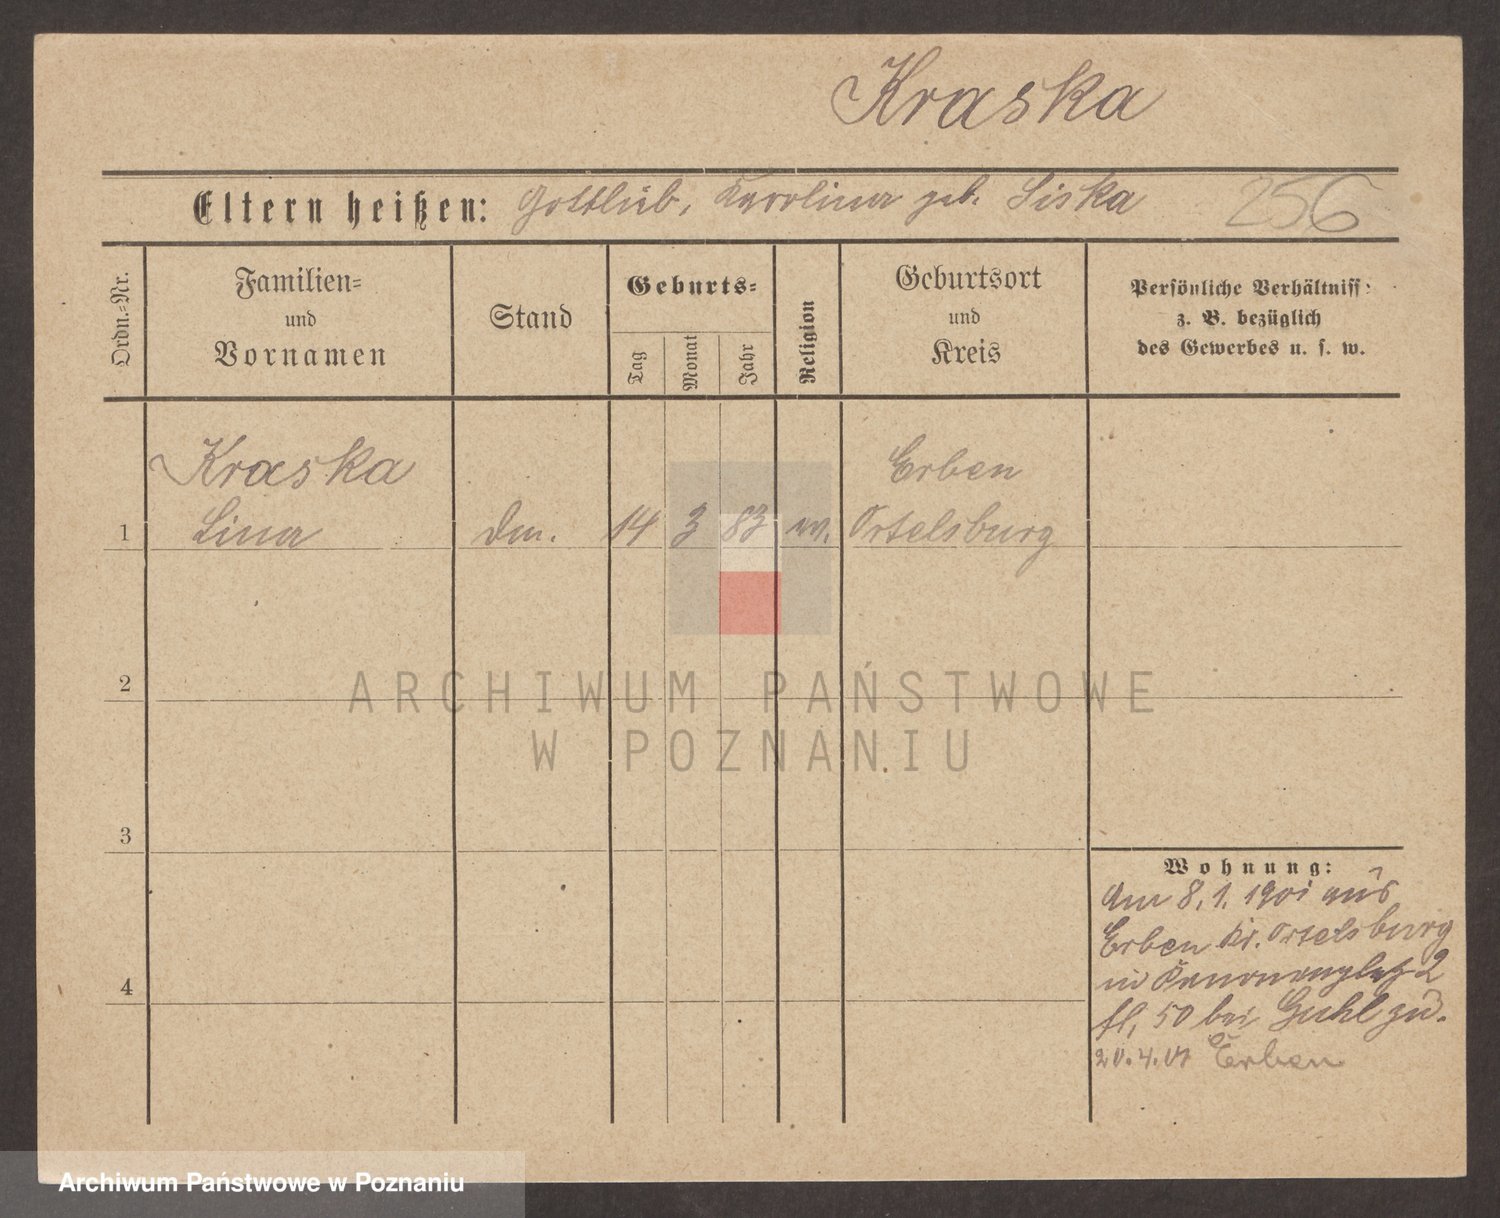 Kraska
Eltern heißen: Gottlieb, Karolina geb. Siska 256
Ordn.-Nr.
Familien-
und
Vornamen
Stand
Geburts-
Tag
Monat
Jahr
Religion
Geburtsort
und
Kreis
Persönliche Verhältniss:
z. B. bezüglich
des Gewerbes u. s. w.
Kraska
Erben
1 Lina 14 3 83 Ortelsburg
2
ARCHIWUM PAŃSTWOWE
W POZNANIU
3
Wohnung:
Am 8.1.1901 aus
Erben Kr. Ortelsburg
in 2
50 bei Guhl zu.
4
20.4.01 Erben
Archiwum Państwowe w Poznaniu